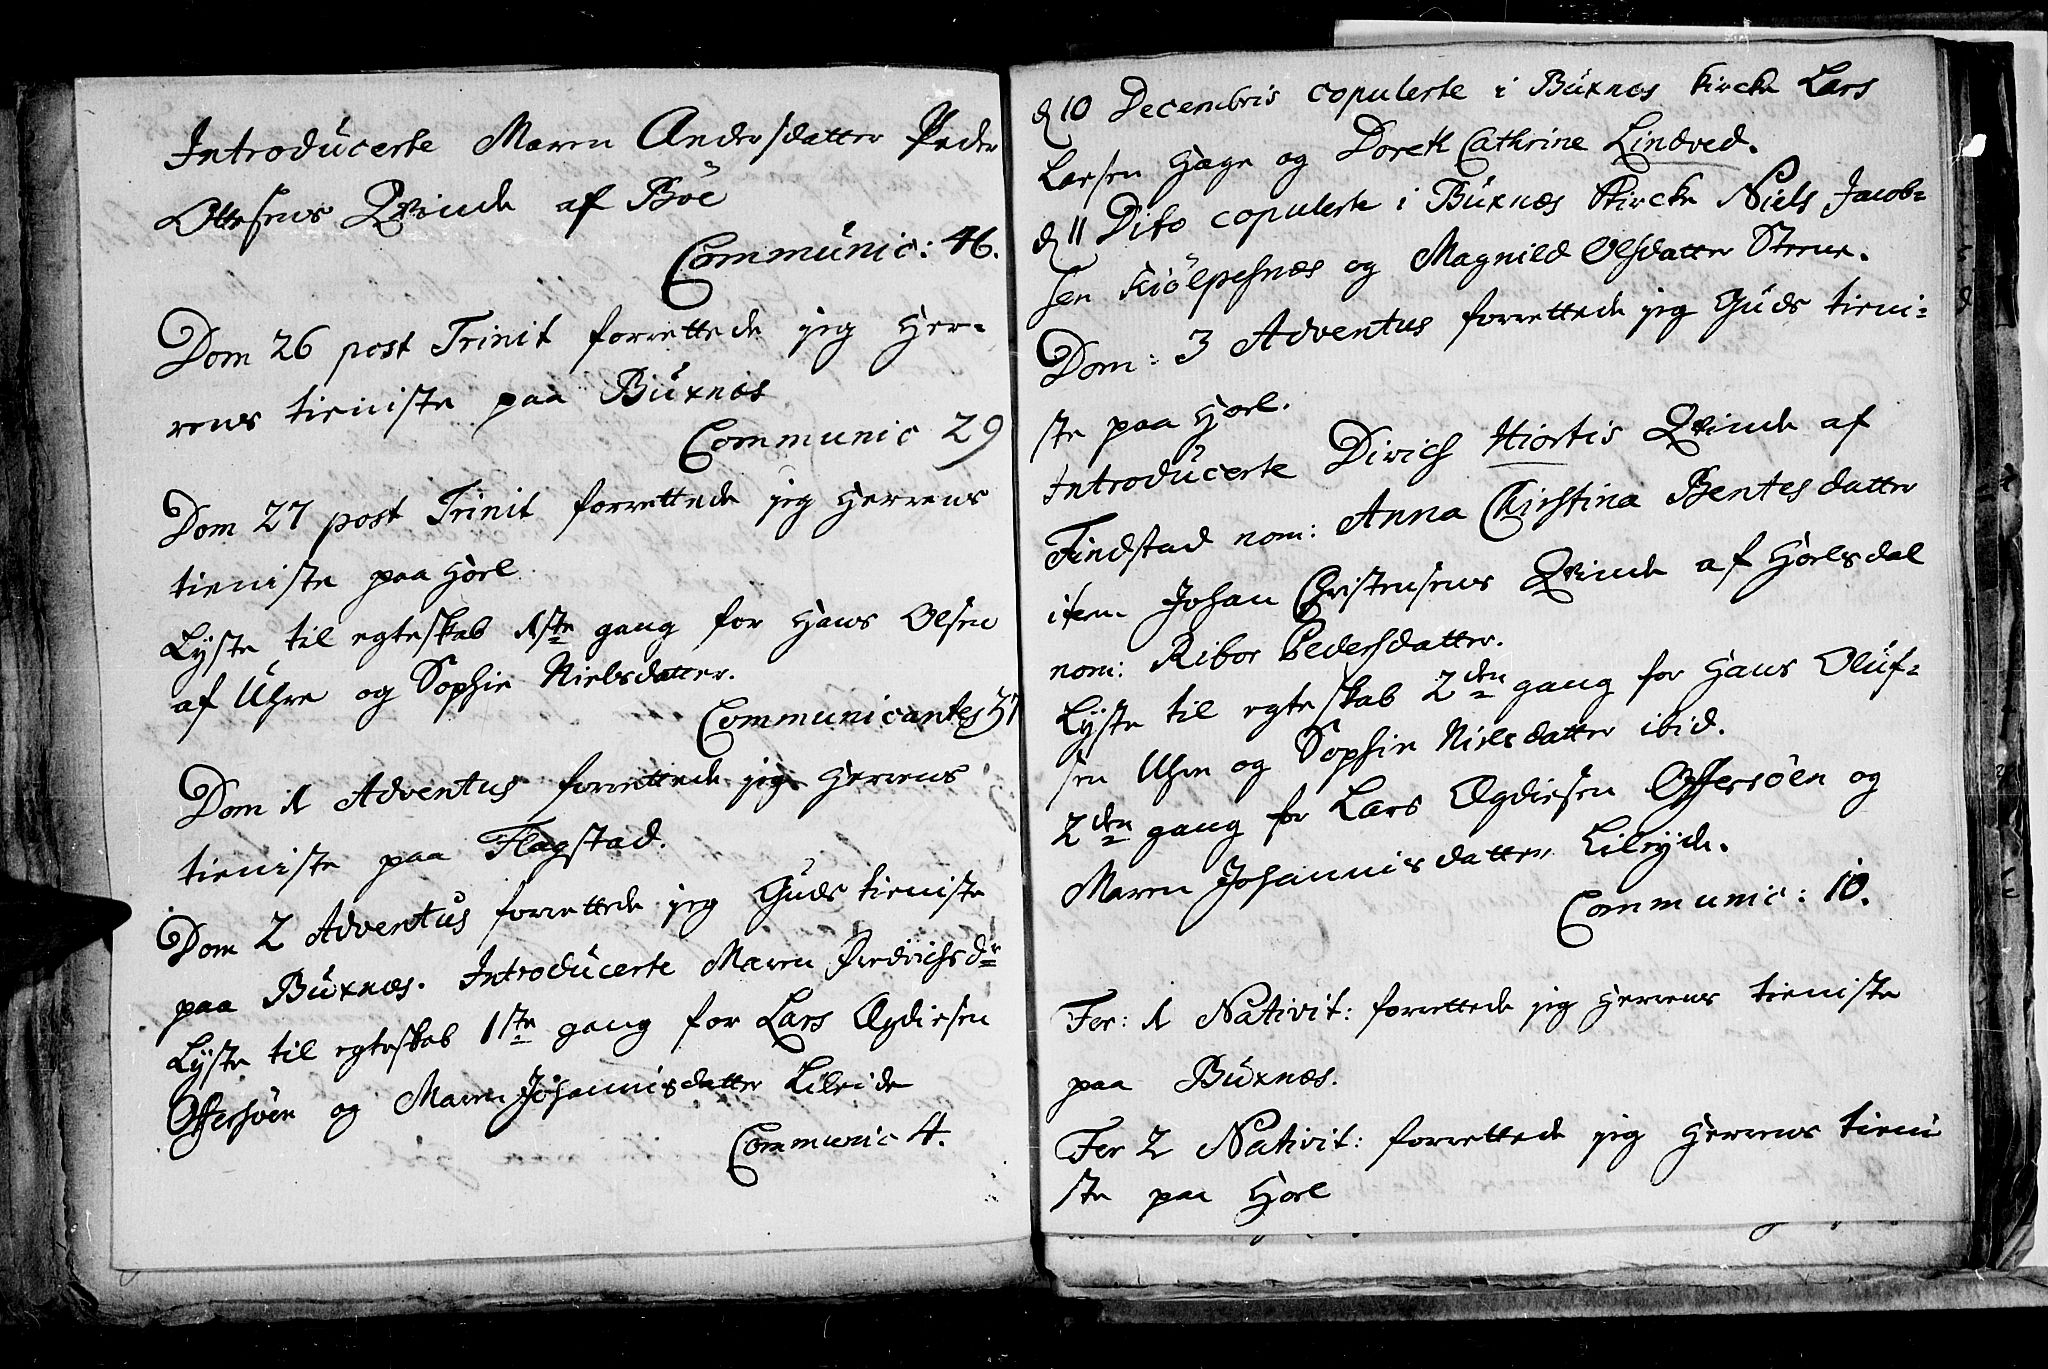 Introducerte Maren Andersdatter Peder
Ottesens Qvinde af Böe
Communic: 46.
Dom 26 post Trinit forrettede jeg Her-
rens tieniste paa Buxnæs
Communic 29
Dom 27 post Trinit forrettede jeg Herrens
tieniste paa Hörl
Lyste til egteskab 1ste gang for Hans Olsen
af Uhre og Sophie Nielsdatter.
Communicantes 37
Dom 1 Adventus forrettede jeg Herrens
tieniste paa Flagstad.
Dom 2 Adventus forrettede jeg Guds tieniste
paa Buxnæs. Introducerte Maren Fredrichsdr
Lyste til egteskab 1ste gang for Lars Ægdiesen
Offersöen og Maren Johannisdatter Lileide
Communic 4.
d 10 Decembris copulerte i Buxnæs kircke Lars
Larsen Hage og Doreth Cathrine Lindved.
d 11 Dito copulerte i Buxnæs Kircke Niels Jacob-
sen Kiölpesnæs og Magnild Olsdatter Steene.
Dom: 3 Adventus forrettede jeg Guds tieni-
ste paa Hörl.
Introducerte Dirich Hiortis Qvinde af
Findstad nom: Anna Christina Bentesdatter
item Johan Christensens Qvinde af Hörlsdal
nom: Ribor Pedersdatter.
Lyste til egteskab 2den gang for Hans Oluf-
sen Uhre og Sophie Nielsdatter ibid.
2den gang for Lars Ægdiesen Offersöen og
Maren Johannisdatter Lileyde.
Communic: 10.
Fer: 1 Nativit: forrettede jeg Herrens tieniste
paa Buxnæs.
Fer 2 Nativit: forrettede jeg Herrens tieni
ste paa Hörl